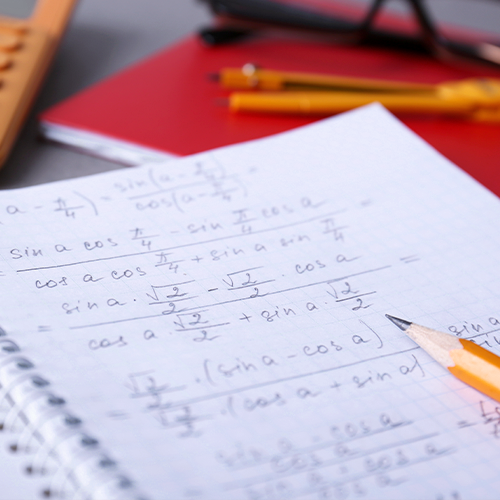 (a - π/4) = sin(a - π/4) / cos(a - π/4) =
= sin a cos π/4 - sin π/4 cos a / cos a cos π/4 + sin a sin π/4 =
= sin a · √2/2 - √2/2 · cos a / cos a · √2/2 + sin a · √2/2 =
= √2/2 · (sin a - cos a) / √2/2 · (cos a + sin a) sin a
sin a - cos a / cos a =